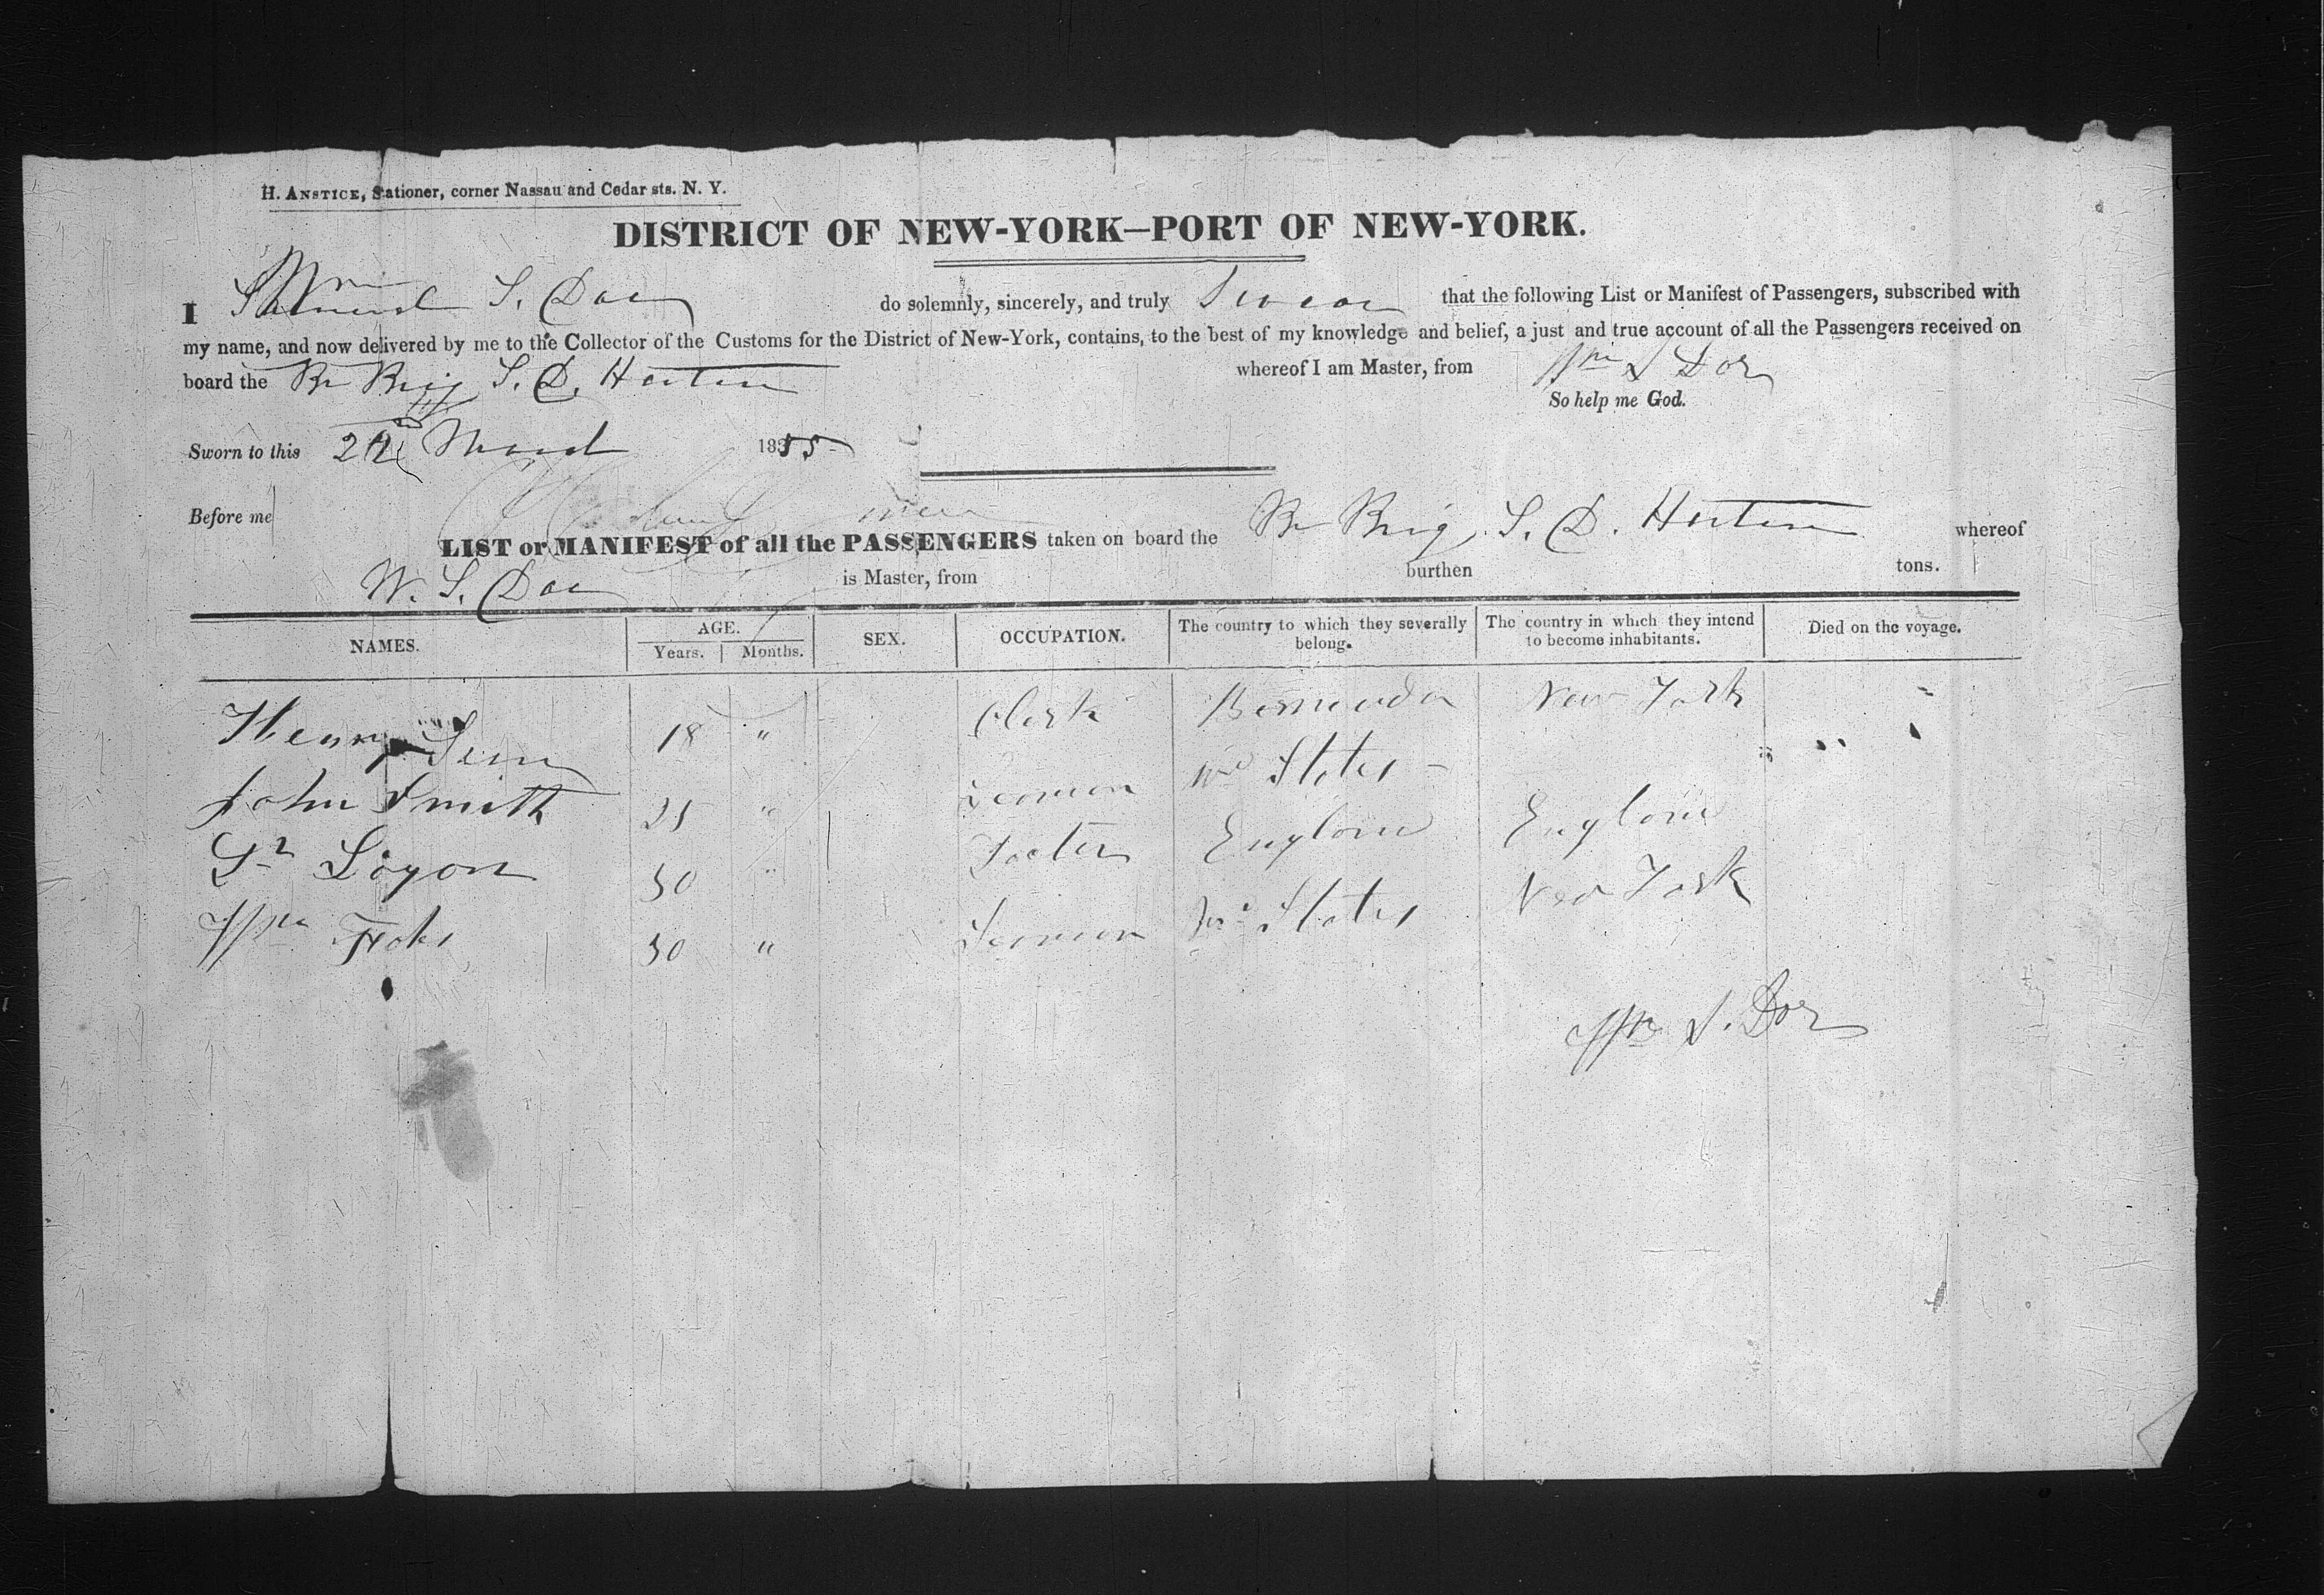 H. ANSTICE, Stationer, corner Nassau and Cedar sts. N. Y.
DISTRICT OF NEW-YORK—PORT OF NEW-YORK.
I Wm S. Doe do solemnly, sincerely, and truly Swear that the following List or Manifest of Passengers, subscribed with
my name, and now delivered by me to the Collector of the Customs for the District of New-York, contains, to the best of my knowledge and belief, a just and true account of all the Passengers received on
board the Br Brig S. D. Horton whereof I am Master, from Wm S Doe
So help me God.
Sworn to this March 1855
Before me
LIST or MANIFEST of all the PASSENGERS taken on board the Br Brig S. D. Horton whereof
W. S. Doe is Master, from burthen tons.
NAMES. AGE. Years. Months. SEX. OCCUPATION. The country to which they severally belong. The country in which they intend to become inhabitants. Died on the voyage.
Henry 18 " Clerk Bermuda New York
John Smith 25 " Seaman States
Logon 30 " Doctor England England
Wm 30 " Seaman States New York
Wm S. Doe